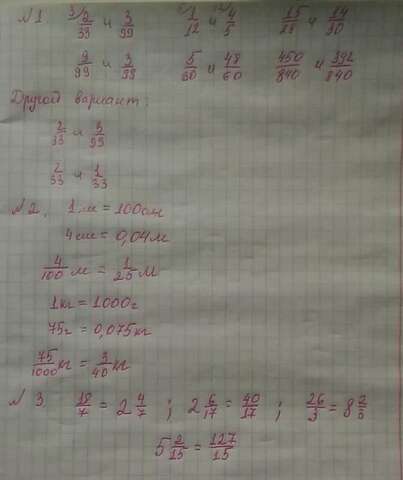 №1 3\ 2/33 и 3/99 5\ 1/12 и 12\ 4/5 15/28 и 14/30
9/99 и 3/99 5/60 и 48/60 450/840 и 392/840
Другой вариант:
2/33 и 3/99
2/33 и 1/33
№2. 1 м = 100 см
4 см = 0,04 м
4/100 м = 1/25 м
1 кг = 1000 г
75 г = 0,075 кг
75/1000 кг = 3/40 кг
№3 18/7 = 2 4/7 ; 2 6/17 = 40/17 ; 26/3 = 8 2/3
5 2/15 = 127/15